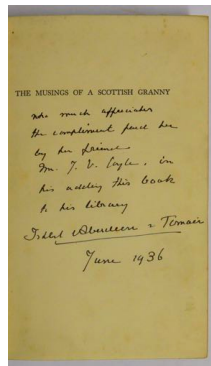 THE MUSINGS OF A SCOTTISH GRANNY
who much appreciates
the compliment paid her
by her friend
Mr. J. V. Coyle, in
his adding this book
to his library
Ishbel Aberdeen & Temair
June 1936